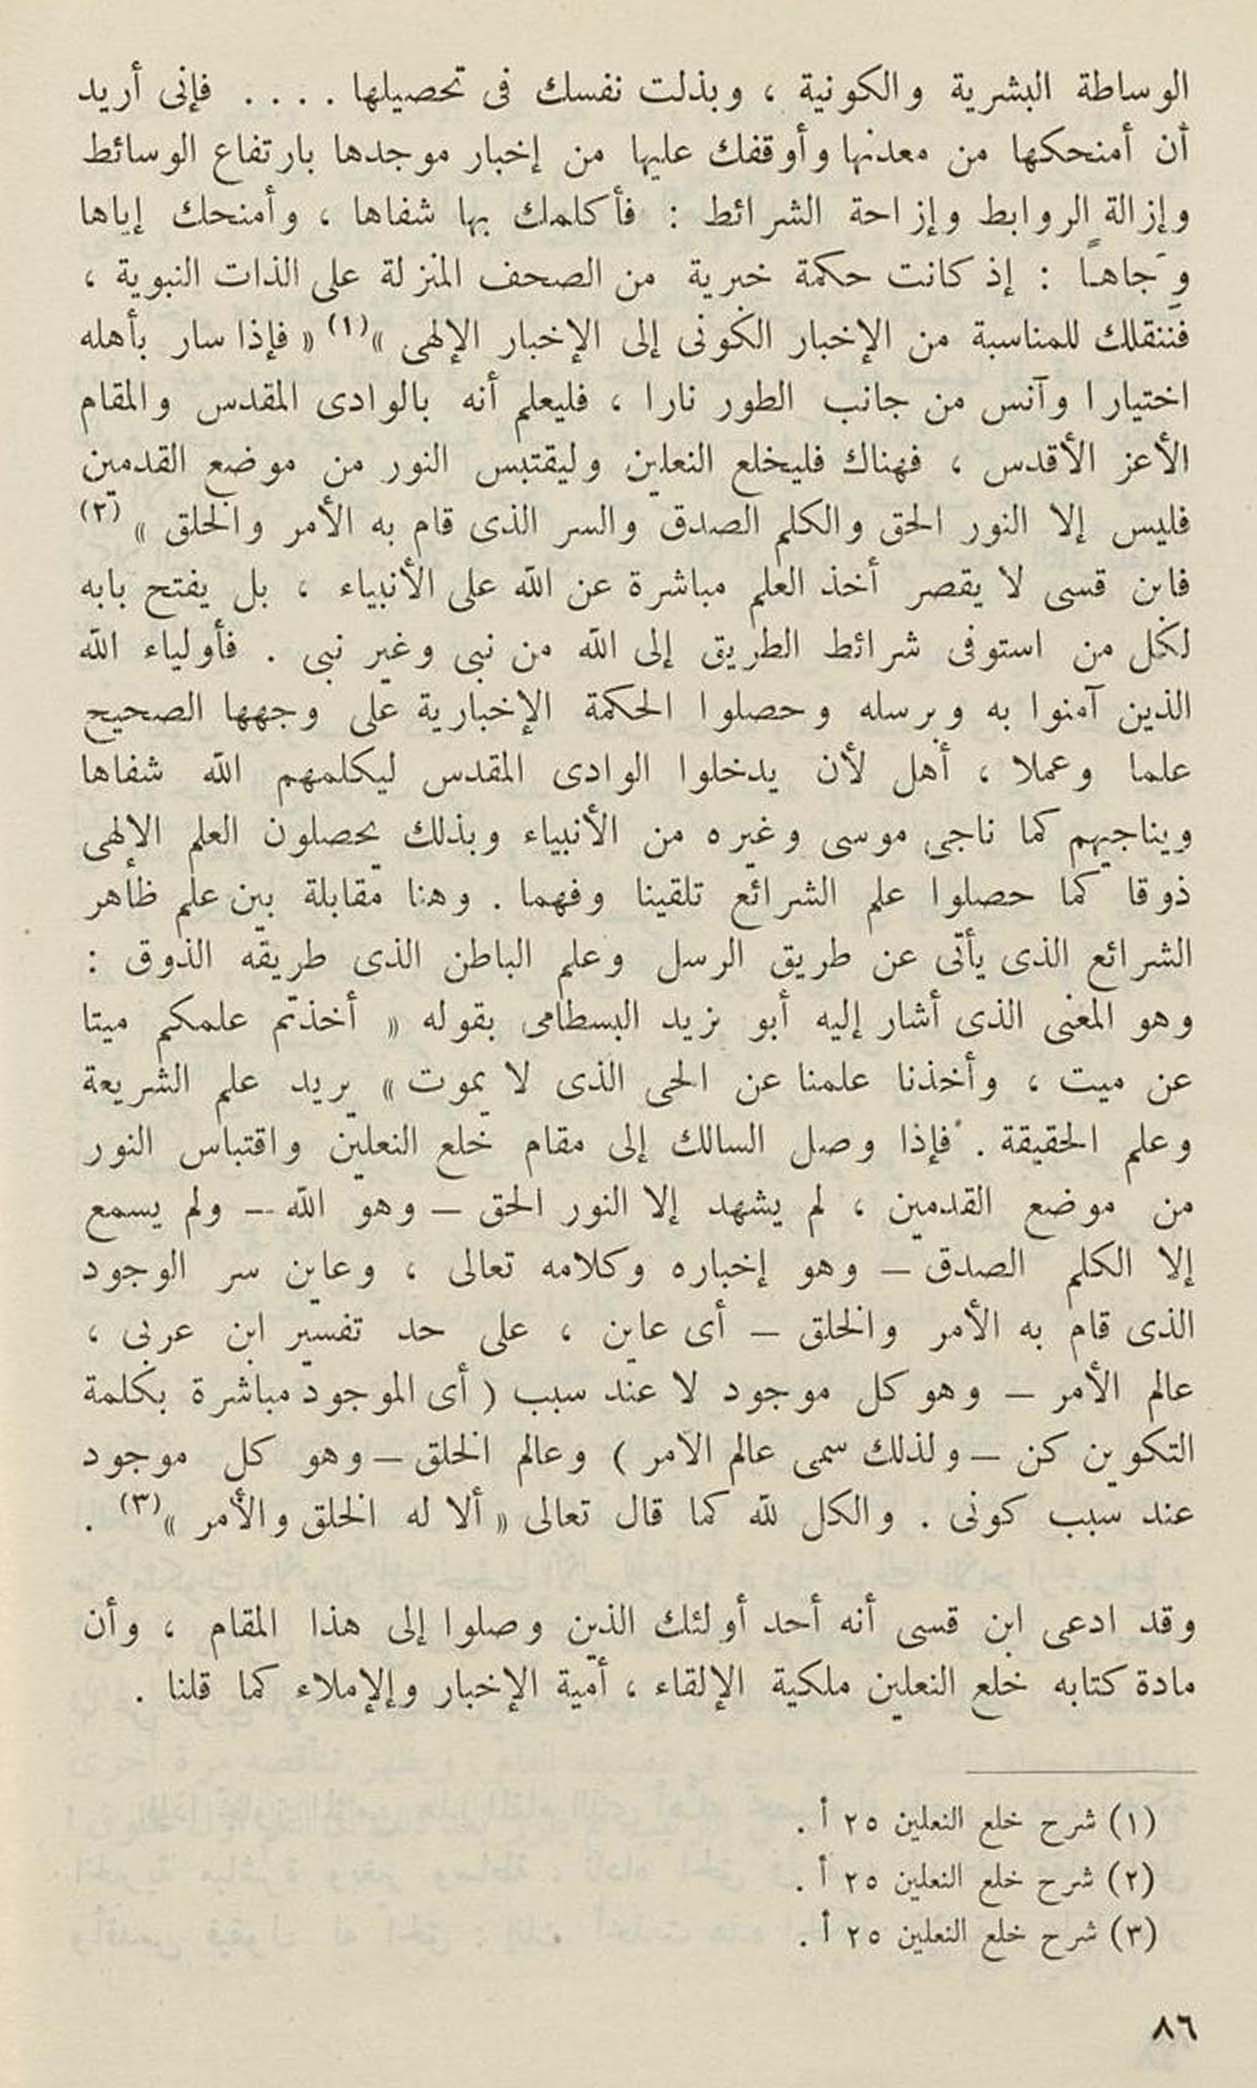 الوساطة البشرية والكونية ، وبذلت نفسك فى تحصيلها . . . . فإنى أريد
أن أمنحكها من معدنها وأوقفك عليها من إخبار موجدها بارتفاع الوسائط
وإزالة الروابط وإزاحة الشرائط : فأكلمك بها شفاها ، وأمنحك إياها
وجاهاً : إذ كانت حكمة خبرية من الصحف المنزلة على الذات النبوية ،
فننقلك للمناسبة من الإخبار الكونى إلى الإخبار الإلهى »(١) « فإذا سار بأهله
اختيارا وآنس من جانب الطور نارا ، فليعلم أنه بالوادى المقدس والمقام
الأعز الأقدس ، فهناك فليخلع النعلين وليقتبس النور من موضع القدمين
فليس إلا النور الحق والكلم الصدق والسر الذى قام به الأمر والخلق » (٢)
فابن قسى لا يقصر أخذ العلم مباشرة عن الله على الأنبياء ، بل يفتح بابه
لكل من استوفى شرائط الطريق إلى الله من نبى وغير نبى . فأولياء الله
الذين آمنوا به وبرسله وحصلوا الحكمة الإخبارية على وجهها الصحيح
علما وعملا ، أهل لأن يدخلوا الوادى المقدس ليكلمهم الله شفاها
ويناجيهم كما ناجى موسى وغيره من الأنبياء وبذلك يحصلون العلم الإلهى
ذوقا كما حصلوا علم الشرائع تلقينا وفهما . وهنا مقابلة بين علم ظاهر
الشرائع الذى يأتى عن طريق الرسل وعلم الباطن الذى طريقه الذوق :
وهو المعنى الذى أشار إليه أبو يزيد البسطامى بقوله « أخذتم علمكم ميتا
عن ميت ، وأخذنا علمنا عن الحى الذى لا يموت » يريد علم الشريعة
وعلم الحقيقة . فإذا وصل السالك إلى مقام خلع النعلين واقتباس النور
من موضع القدمين ، لم يشهد إلا النور الحق – وهو الله – ولم يسمع
إلا الكلم الصدق – وهو إخباره وكلامه تعالى ، وعاين سر الوجود
الذى قام به الأمر والخلق – أى عاين ، على حد تفسير ابن عربى ،
عالم الأمر – وهو كل موجود لا عند سبب ( أى الموجود مباشرة بكلمة
التكوين كن – ولذلك سمى عالم الامر ) وعالم الخلق – وهو كل موجود
عند سبب كونى . والكل لله كما قال تعالى « ألا له الخلق والأمر »(٣) .
وقد ادعى ابن قسى أنه أحد أولئك الذين وصلوا إلى هذا المقام ، وأن
مادة كتابه خلع النعلين ملكية الإلقاء ، أمية الإخبار والإملاء كما قلنا .
(١) شرح خلع النعلين ٢٥ أ .
(٢) شرح خلع النعلين ٢٥ أ .
(٣) شرح خلع النعلين ٢٥ أ .
٨٦